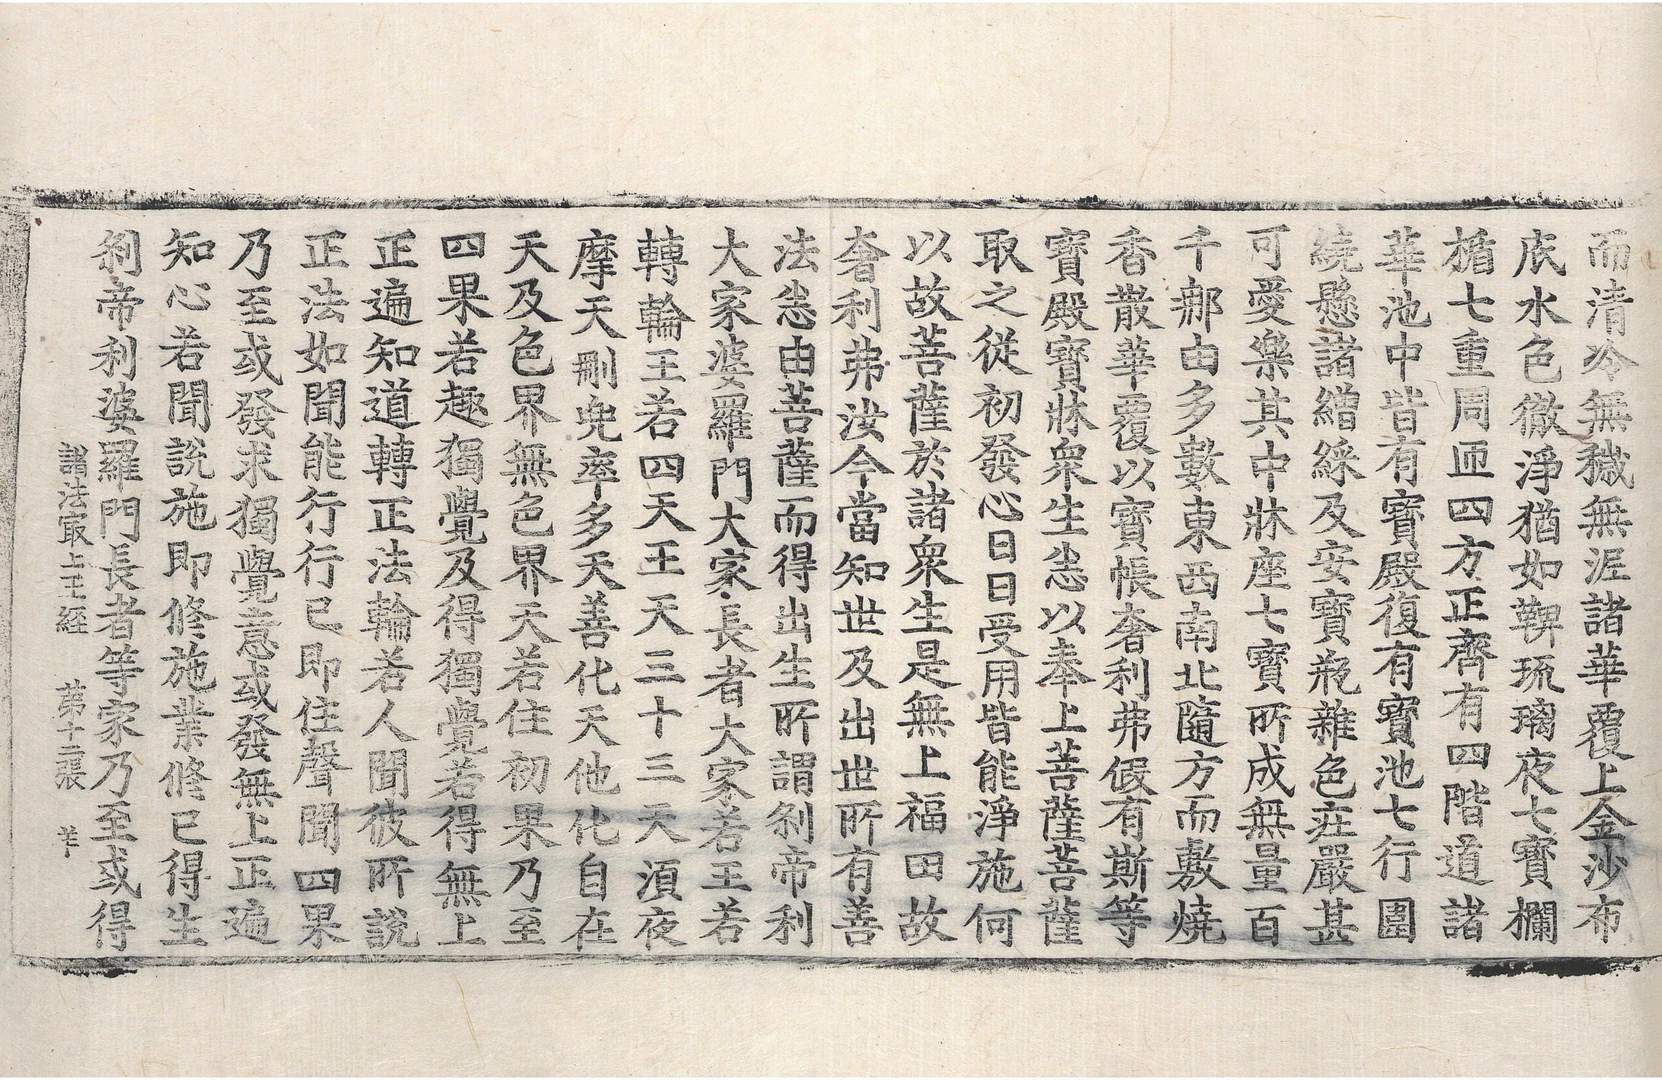 而清冷無穢無涯諸華覆上金沙布
底水色徹淨猶如鞞琉璃夜七寶欄
楯七重周匝四方正齊有四階道諸
華池中皆有寶殿復有寶池七行圍
繞懸諸繒綵及安寶瓶雜色莊嚴甚
可愛樂其中牀座七寶所成無量百
千那由多數東西南北隨方而敷燒
香散華覆以寶帳奢利弗假有斯等
寶殿寶牀衆生悉以奉上菩薩菩薩
取之從初發心日日受用皆能淨施何
以故菩薩於諸衆生是無上福田故
奢利弗汝今當知世及出世所有善
法悉由菩薩而得出生所謂剎帝利
大家婆羅門大家長者大家若王若
轉輪王若四天王天三十三天湏夜
摩天刪兜率多天善化天他化自在
天及色界無色界天若住初果乃至
四果若趣獨覺及得獨覺若得無上
正遍知道轉正法輪若人聞彼所說
正法如聞能行行已即住聲聞四果
乃至或發求獨覺意或發無上正遍
知心若聞說施即修施業修已得生
剎帝利婆羅門長者等家乃至或得
諸法冣上王經　第十二張　芊